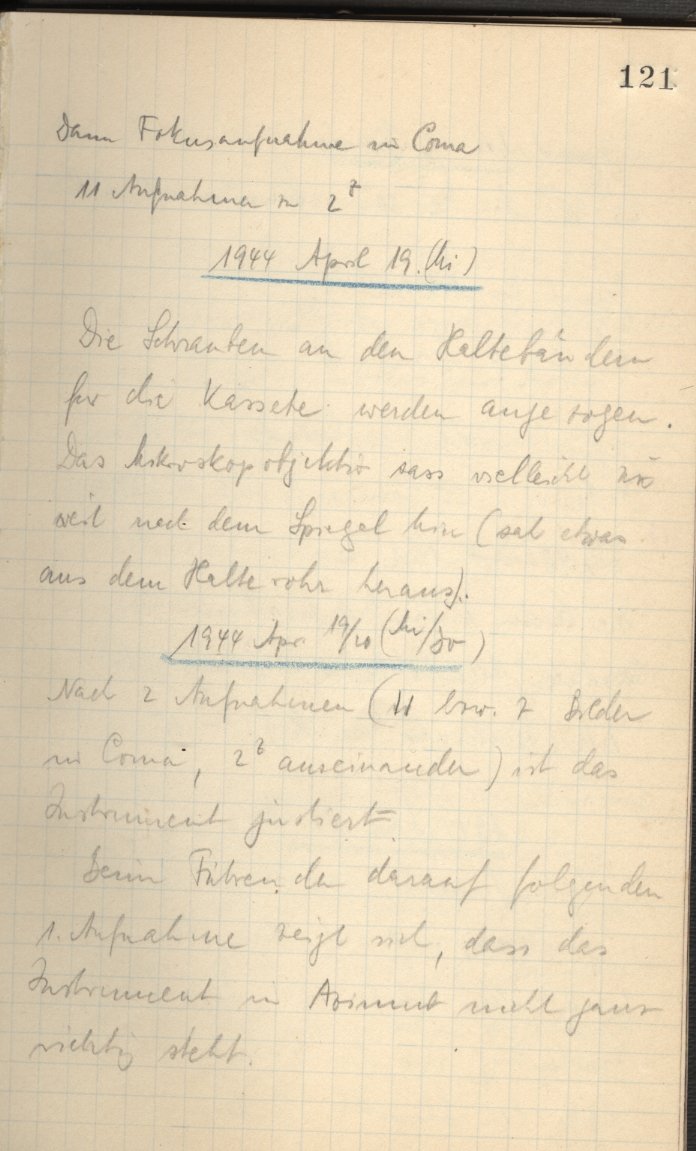 121
Dann Fokusaufnahme in Coma
11 Aufnahmen in 2
1944 April 19. (Mi)
Die Schrauben an den Haltebändern
für die Kassete werden angezogen.
Das Mikroskopobjektiv sass vielleicht zu
weit nach dem Spiegel hin (sah etwas
aus dem Halterohr heraus).
1944 Apr 19/20 (Mi/Do)
Nach 2 Aufnahmen (11 bzw. 7 Bilder
in Coma, 2 auseinander) ist das
Instrument justiert
Beim Führen der darauf folgenden
1. Aufnahme zeigt sich, dass das
Instrument in Azimut nicht ganz
richtig steht.